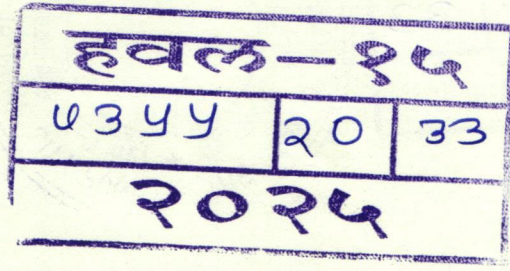 हवल-१५
७३५५ २० ३३
२०२५